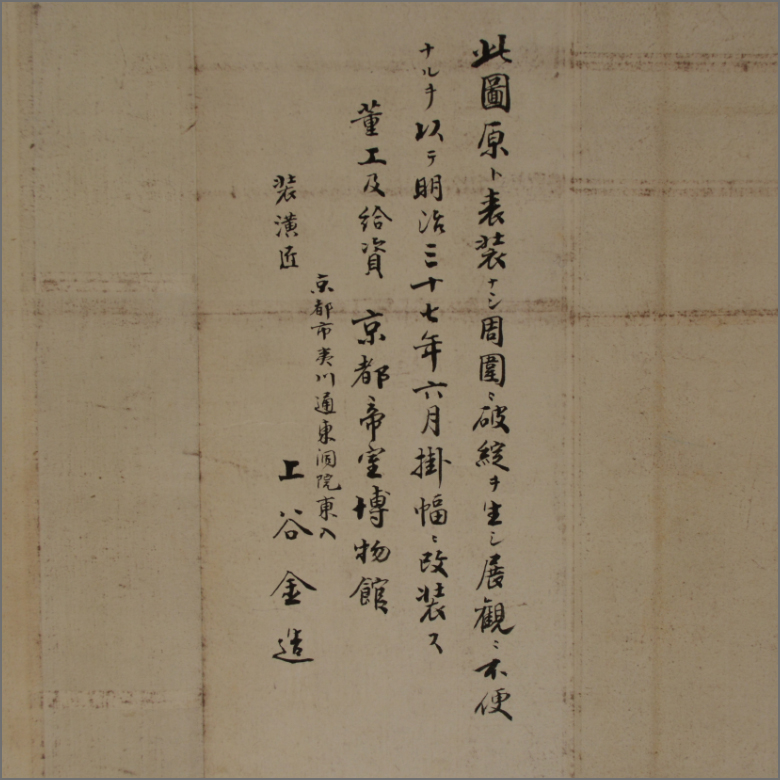 此圖原ト表装ナシ周圍ニ破綻ヲ生シ展観ニ不便
ナルヲ以テ明治三十七年六月掛幅ニ改装ス
董工及給資 京都帝室博物館
京都市夷川通東洞院東入
装潢匠 工谷金造